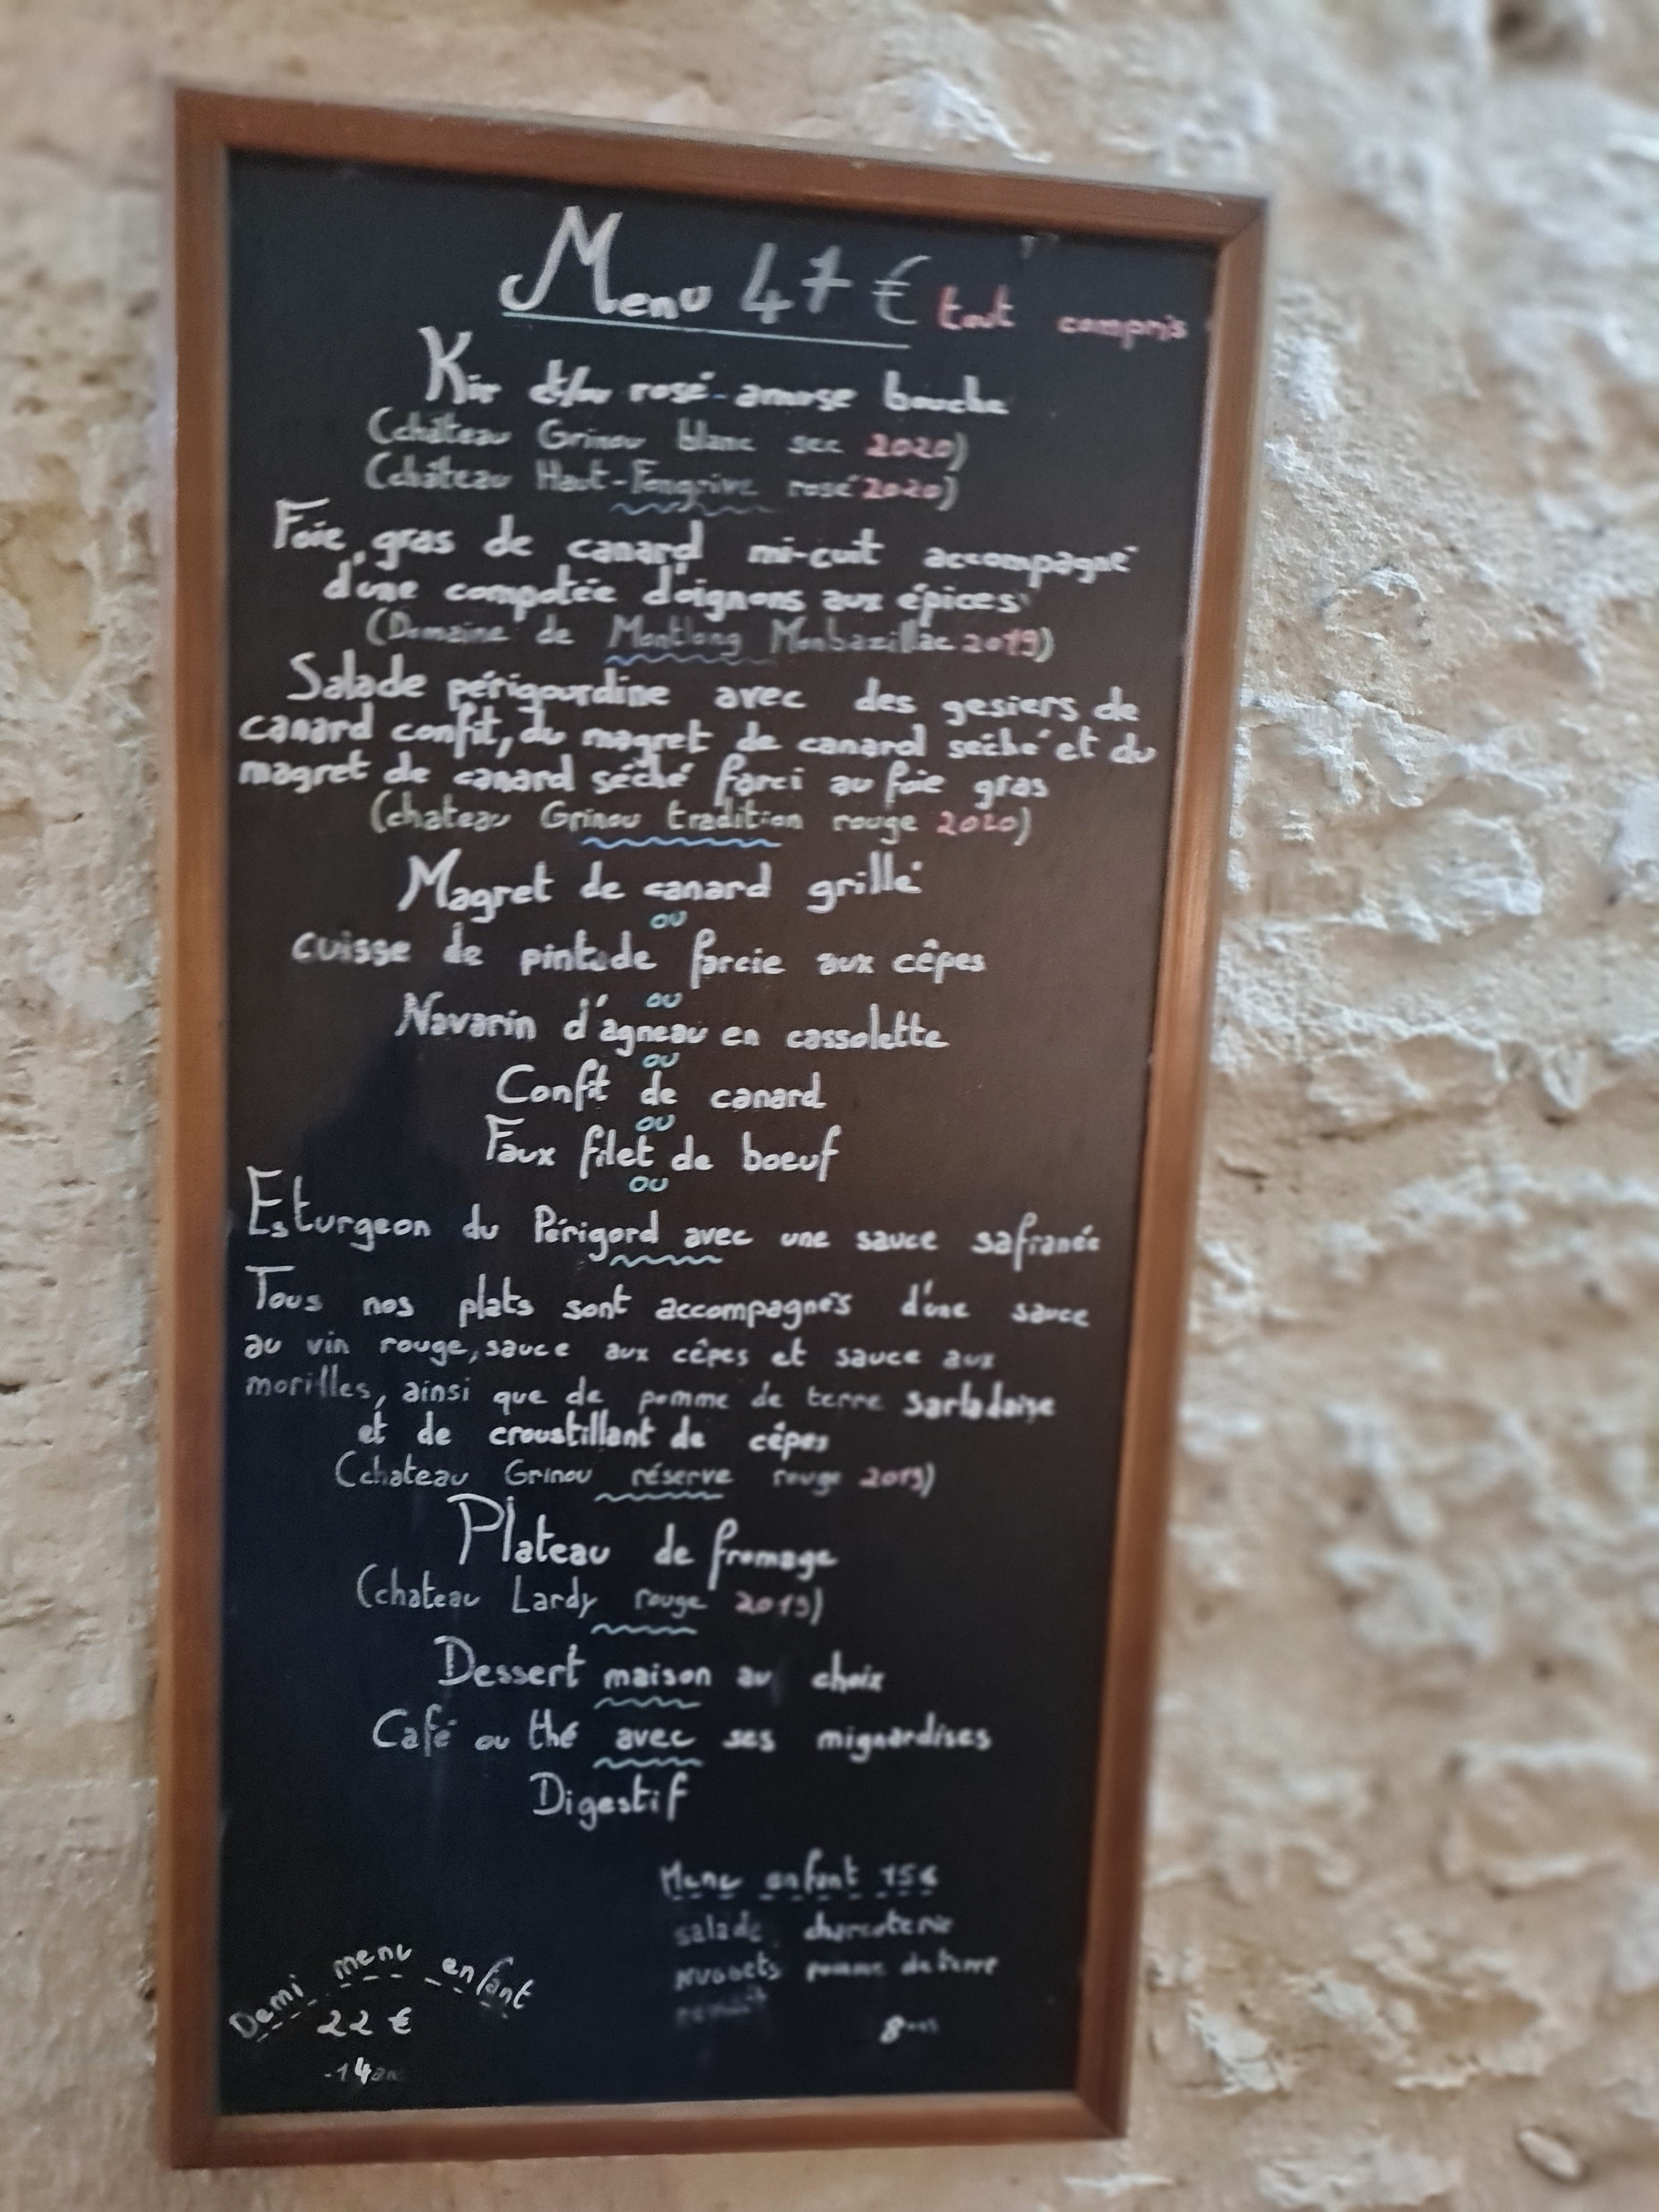 Menu 47 € tout compris
Kir et/ou rosé - amuse bouche
(château Grinou blanc sec 2020)
(château Haut-Fongrive rosé 2020)
Foie gras de canard mi-cuit accompagné
d'une compotée d'oignons aux épices
(Domaine de Montlong Monbazillac 2019)
Salade périgourdine avec des gesiers de
canard confit, du magret de canard séché et du
magret de canard séché farci au foie gras
(chateau Grinou tradition rouge 2020)
Magret de canard grillé
ou
cuisse de pintade farcie aux cêpes
ou
Navarin d'agneau en cassolette
ou
Confit de canard
ou
Faux filet de boeuf
ou
Esturgeon du Périgord avec une sauce safranée
Tous nos plats sont accompagnés d'une sauce
au vin rouge, sauce aux cêpes et sauce aux
morilles, ainsi que de pomme de terre sarladaise
et de croustillant de cêpes
(chateau Grinou réserve rouge 2019)
Plateau de fromage
(chateau Lardy rouge 2019)
Dessert maison au choix
Café ou thé avec ses mignardises
Digestif
Menu enfant 15€
salade charcuterie
nuggets pomme de terre
8 ans
Demi menu enfant
22 €
-14 ans